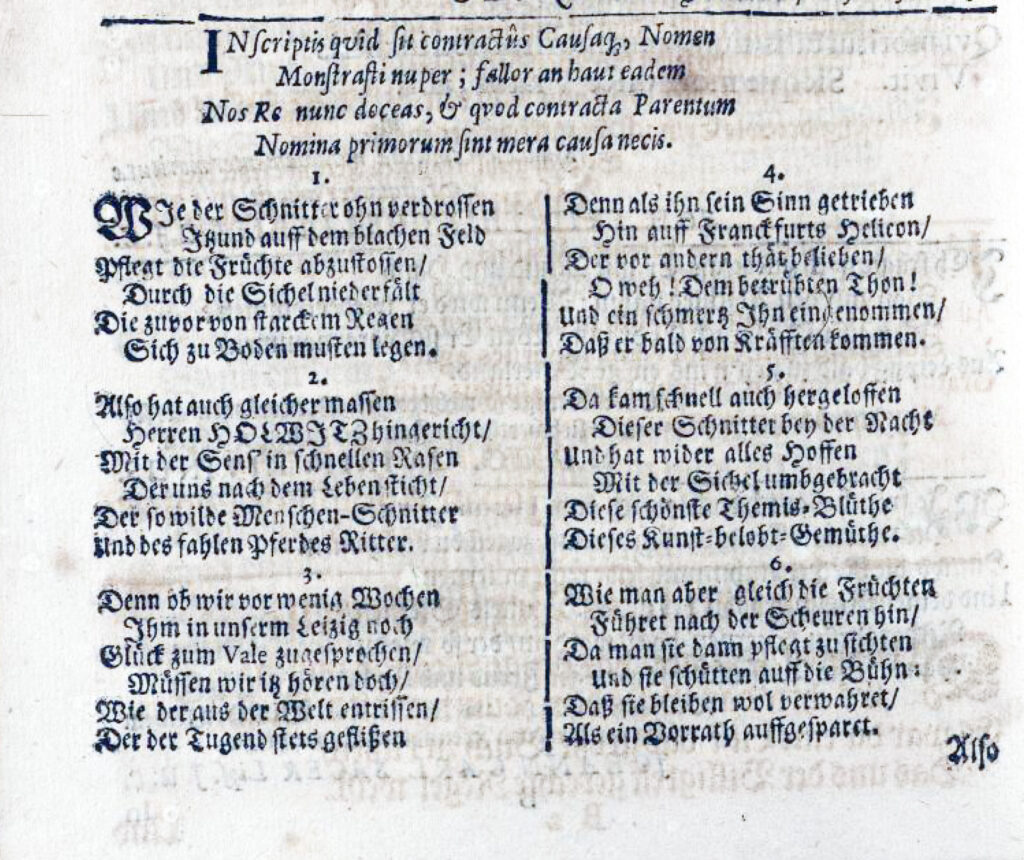 INscriptis qvid sit contractûs Causaq;, Nomen
Monstrasti nuper; fallor an haut eadem
Nos Re nunc doceas, & qvod contracta Parentum
Nomina primorum sint mera causa necis.
1.
WIe der Schnitter ohn verdrossen
Itzund auff dem blachen Feld
Pflegt die Früchte abzustossen/
Durch die Sichel niederfält
Die zuvor von starckem Regen
Sich zu Boden musten legen.
2.
Also hat auch gleicher massen
Herren HOLWITZ hingericht/
Mit der Sens' in schnellen Rasen
Der uns nach dem Leben sticht/
Der so wilde Menschen-Schnitter
Und des fahlen Pferdes Ritter.
3.
Denn ob wir vor wenig Wochen
Ihm in unserm Leizig noch
Glück zum Vale zugesprochen/
Müssen wir itz hören doch/
Wie der aus der Welt entrissen/
Der der Tugend stets geflißen
4.
Denn als ihn sein Sinn getrieben
Hin auff Franckfurts Helicon/
Der vor andern thät belieben/
O weh! Dem betrübten Thon!
Und ein schmertz Ihn eingenommen/
Daß er bald von Kräfften kommen.
5.
Da kam schnell auch hergeloffen
Dieser Schnitter bey der Nacht
Und hat wider alles Hoffen
Mit der Sichel umbgebracht
Diese schönste Themis-Blüthe
Dieses Kunst-belobt-Gemüthe.
6.
Wie man aber gleich die Früchten
Führet nach der Scheuren hin/
Da man sie dann pflegt zu sichten
Und sie schütten auff die Bühn:
Daß sie bleiben wol verwahret/
Als ein Vorrath auffgesparet.
Also